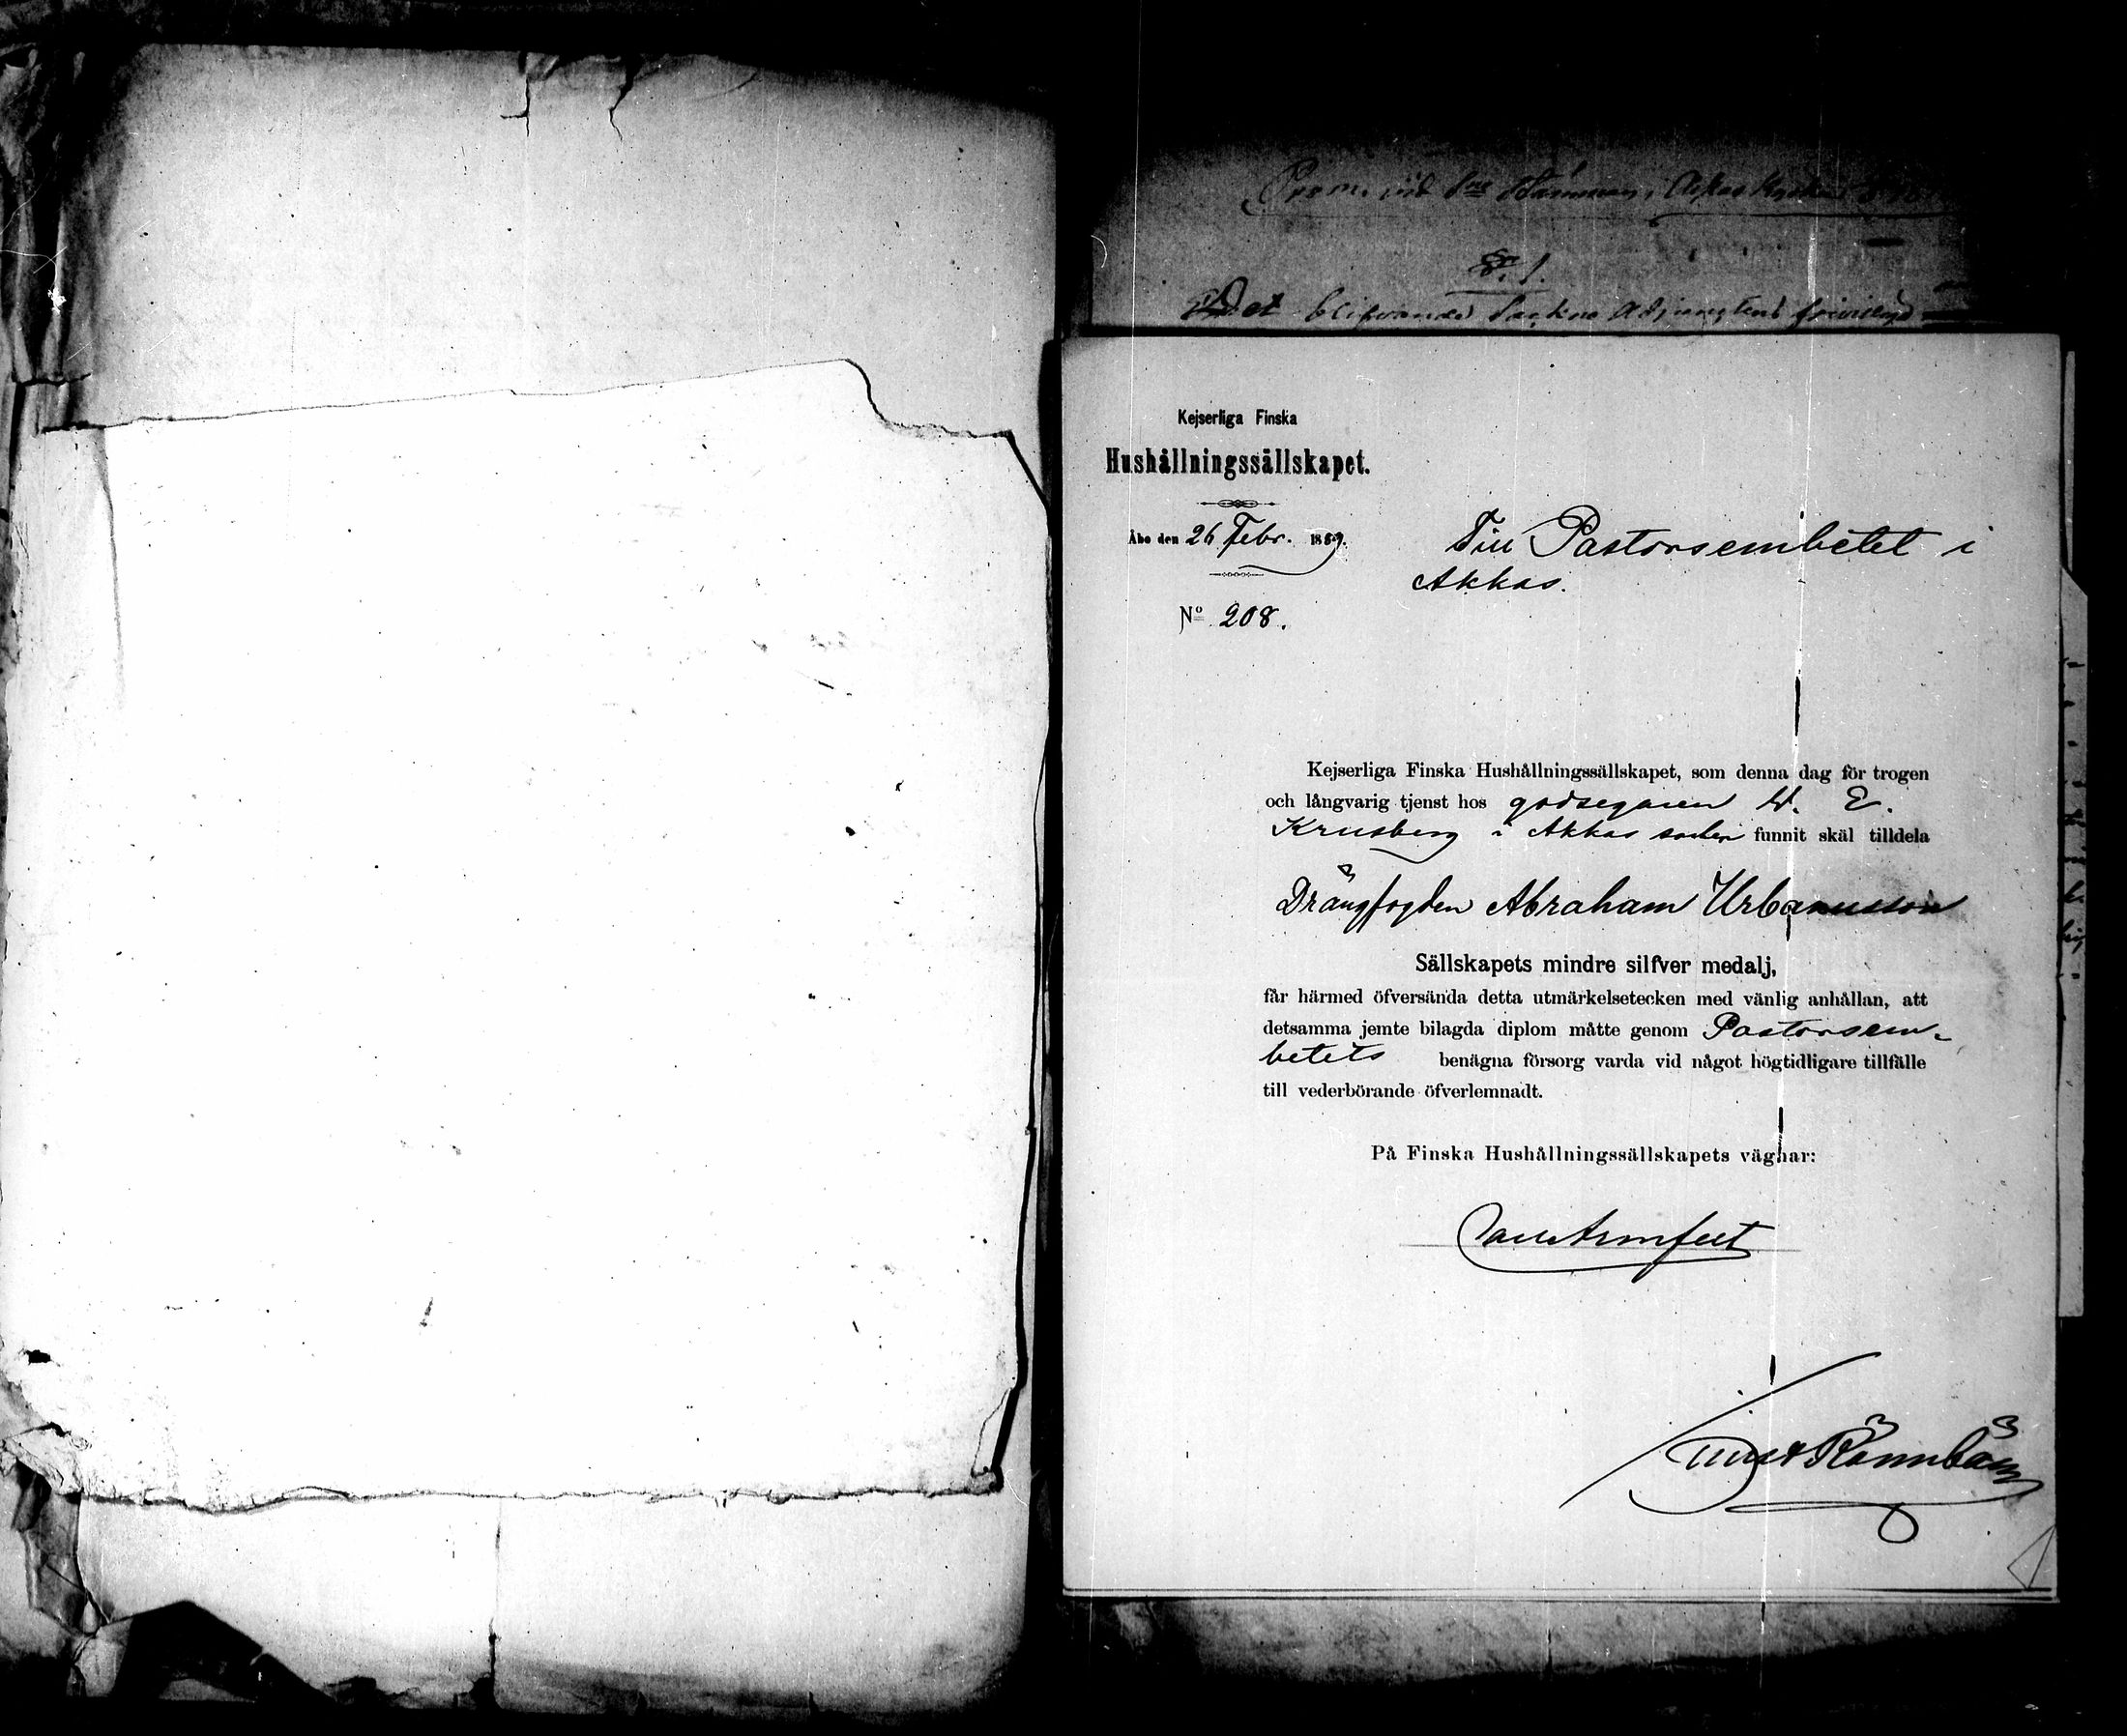 Det blifvande
Kejserliga Finska
Hushållningssällskapet.
Åbo den 26 Febr. 1889.
Till Pastorsembetet i
Akkas.
No 208.
Kejserliga Finska Hushållningssällskapet, som denna dag för trogen
och långvarig tjenst hos godsegaren W. E.
Krusberg i Akkas socken funnit skäl tilldela
Drängfogden Abraham Urbanusson
Sällskapets mindre silfver medalj,
får härmed öfversända detta utmärkelsetecken med vänlig anhållan, att
detsamma jemte bilagda diplom måtte genom Pastorsem-
betets benägna försorg varda vid något högtidligare tillfälle
till vederbörande öfverlemnadt.
På Finska Hushållningssällskapets vägnar:
Armfelt